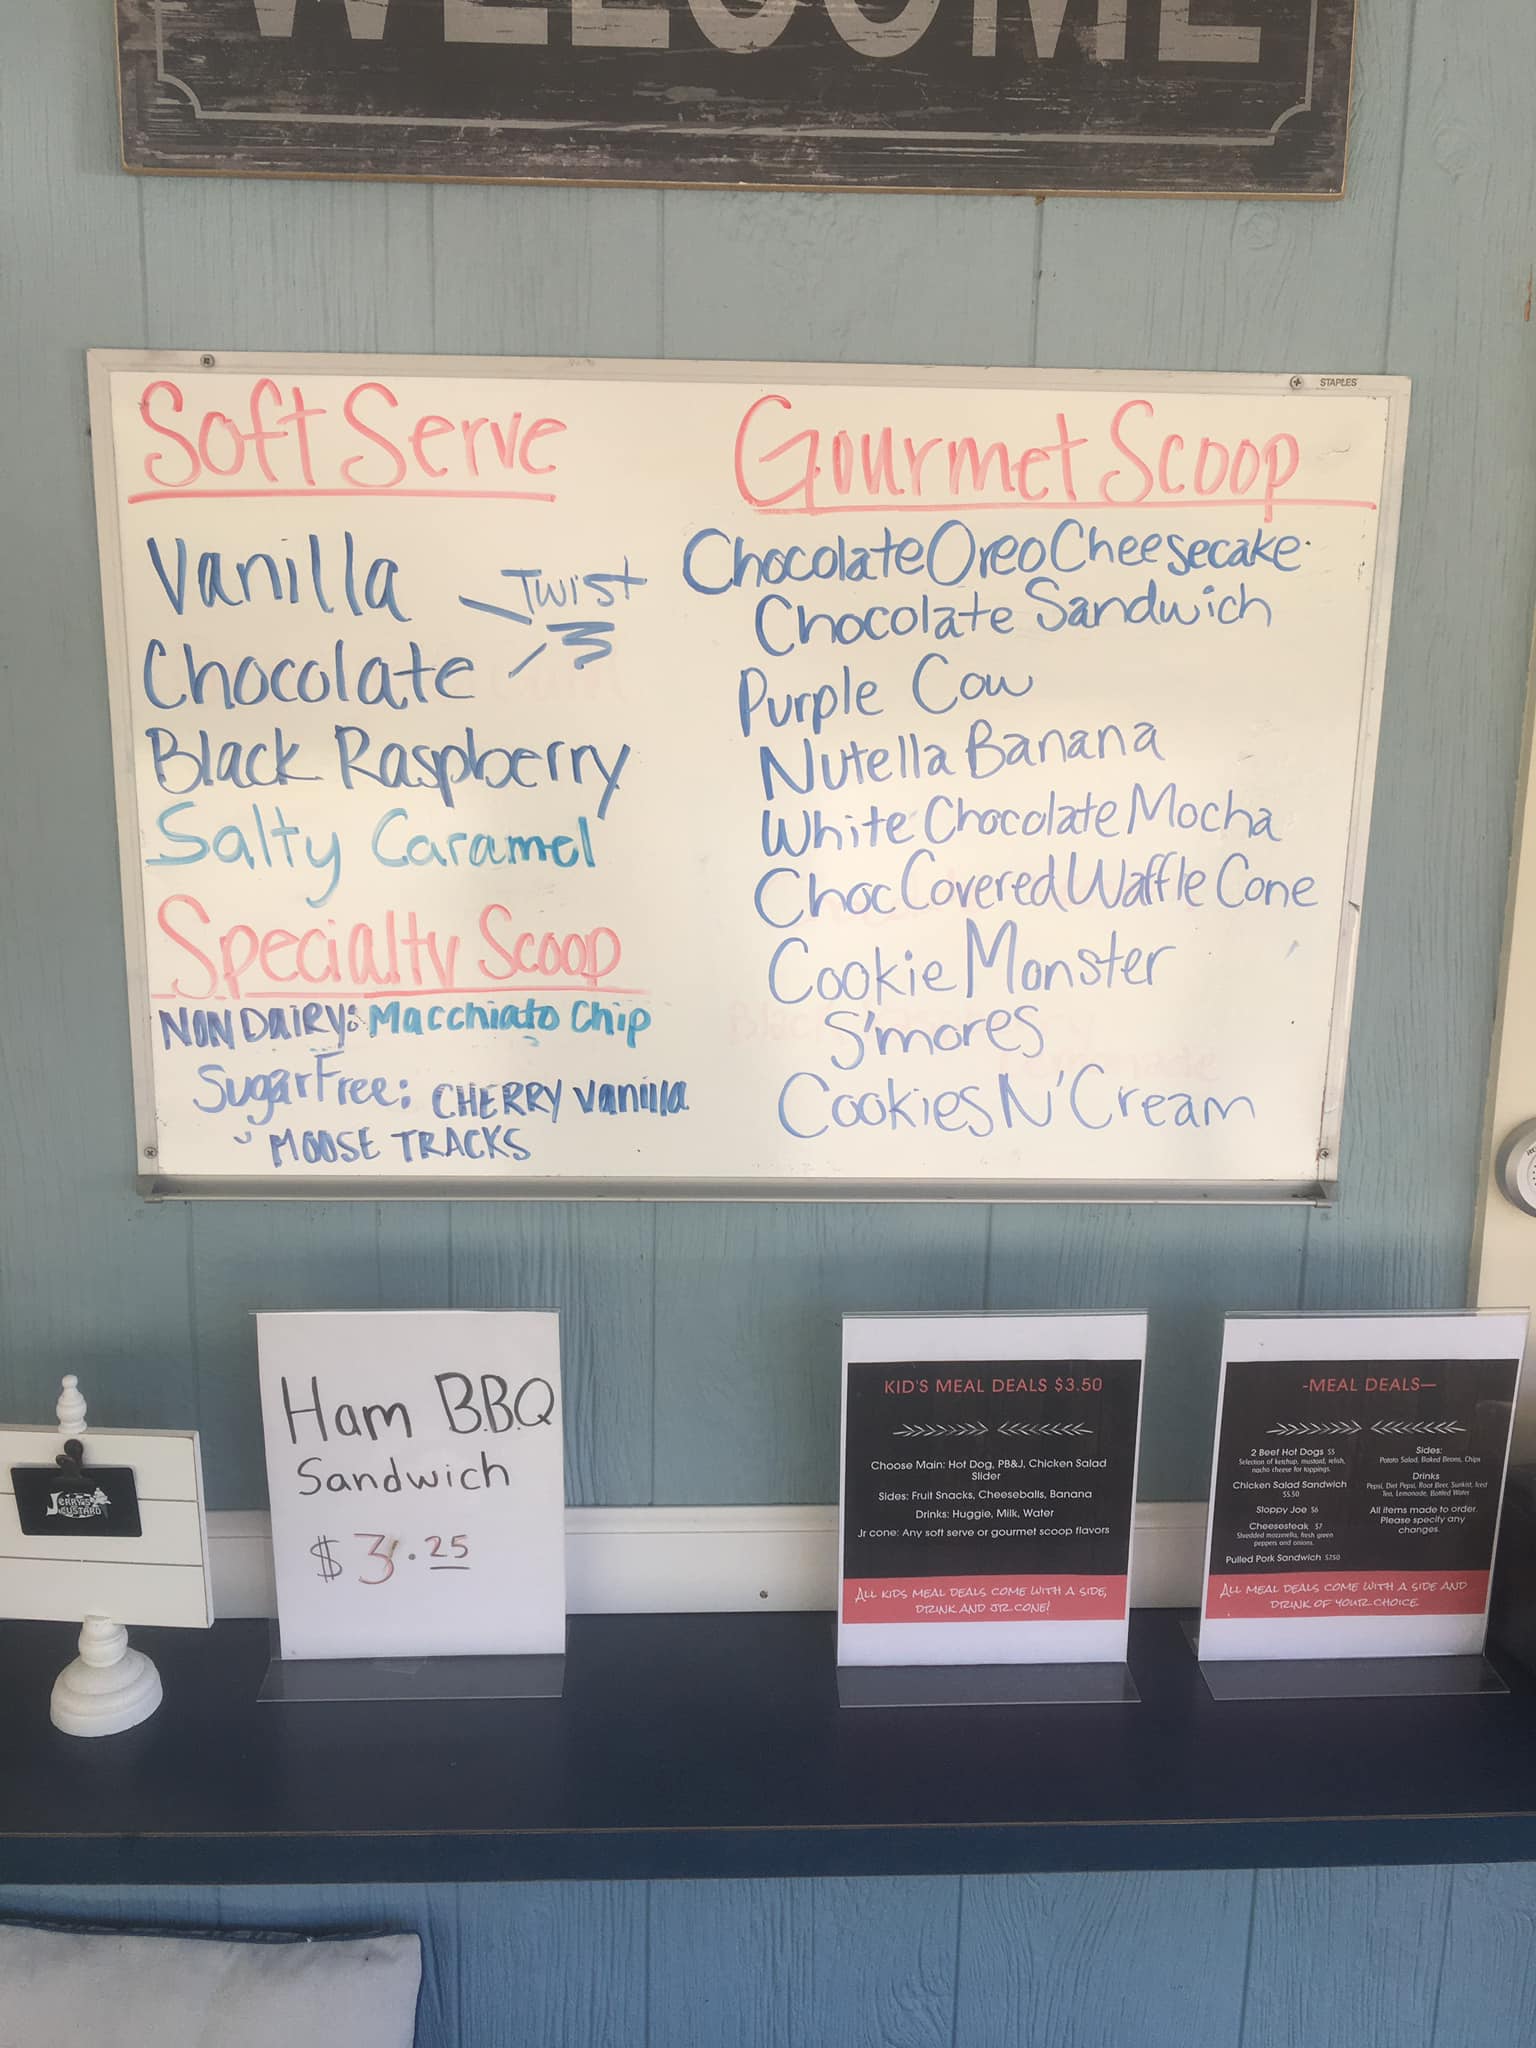 WELCOME
STAPLES
Soft Serve
Vanilla
Twist
Chocolate
Black Raspberry
Salty Caramel
Specialty Scoop
NON DAIRY: Macchiato Chip
Sugar Free: CHERRY Vanilla
MOOSE TRACKS
Gourmet Scoop
Chocolate Oreo Cheesecake
Chocolate Sandwich
Purple Cow
Nutella Banana
White Chocolate Mocha
Choc Covered Waffle Cone
Cookie Monster
S'mores
Cookies N' Cream
JERRY'S
CUSTARD
Ham B.B.Q
Sandwich
$3.25
KID'S MEAL DEALS $3.50
Choose Main: Hot Dog, PB&J, Chicken Salad
Slider
Sides: Fruit Snacks, Cheeseballs, Banana
Drinks: Huggie, Milk, Water
Jr cone: Any soft serve or gourmet scoop flavors
ALL KIDS MEAL DEALS COME WITH A SIDE,
DRINK AND JR. CONE!
-MEAL DEALS—
2 Beef Hot Dogs $5
Selection of ketchup, mustard, relish,
nacho cheese for toppings.
Chicken Salad Sandwich
$5.50
Sloppy Joe $6
Cheesesteak $7
Shredded mozzarella, fresh green
peppers and onions.
Pulled Pork Sandwich $7.50
Sides:
Potato Salad, Baked Beans, Chips
Drinks
Pepsi, Diet Pepsi, Root Beer, Sunkist, Iced
Tea, Lemonade, Bottled Water
All items made to order.
Please specify any
changes.
ALL MEAL DEALS COME WITH A SIDE AND
DRINK OF YOUR CHOICE.